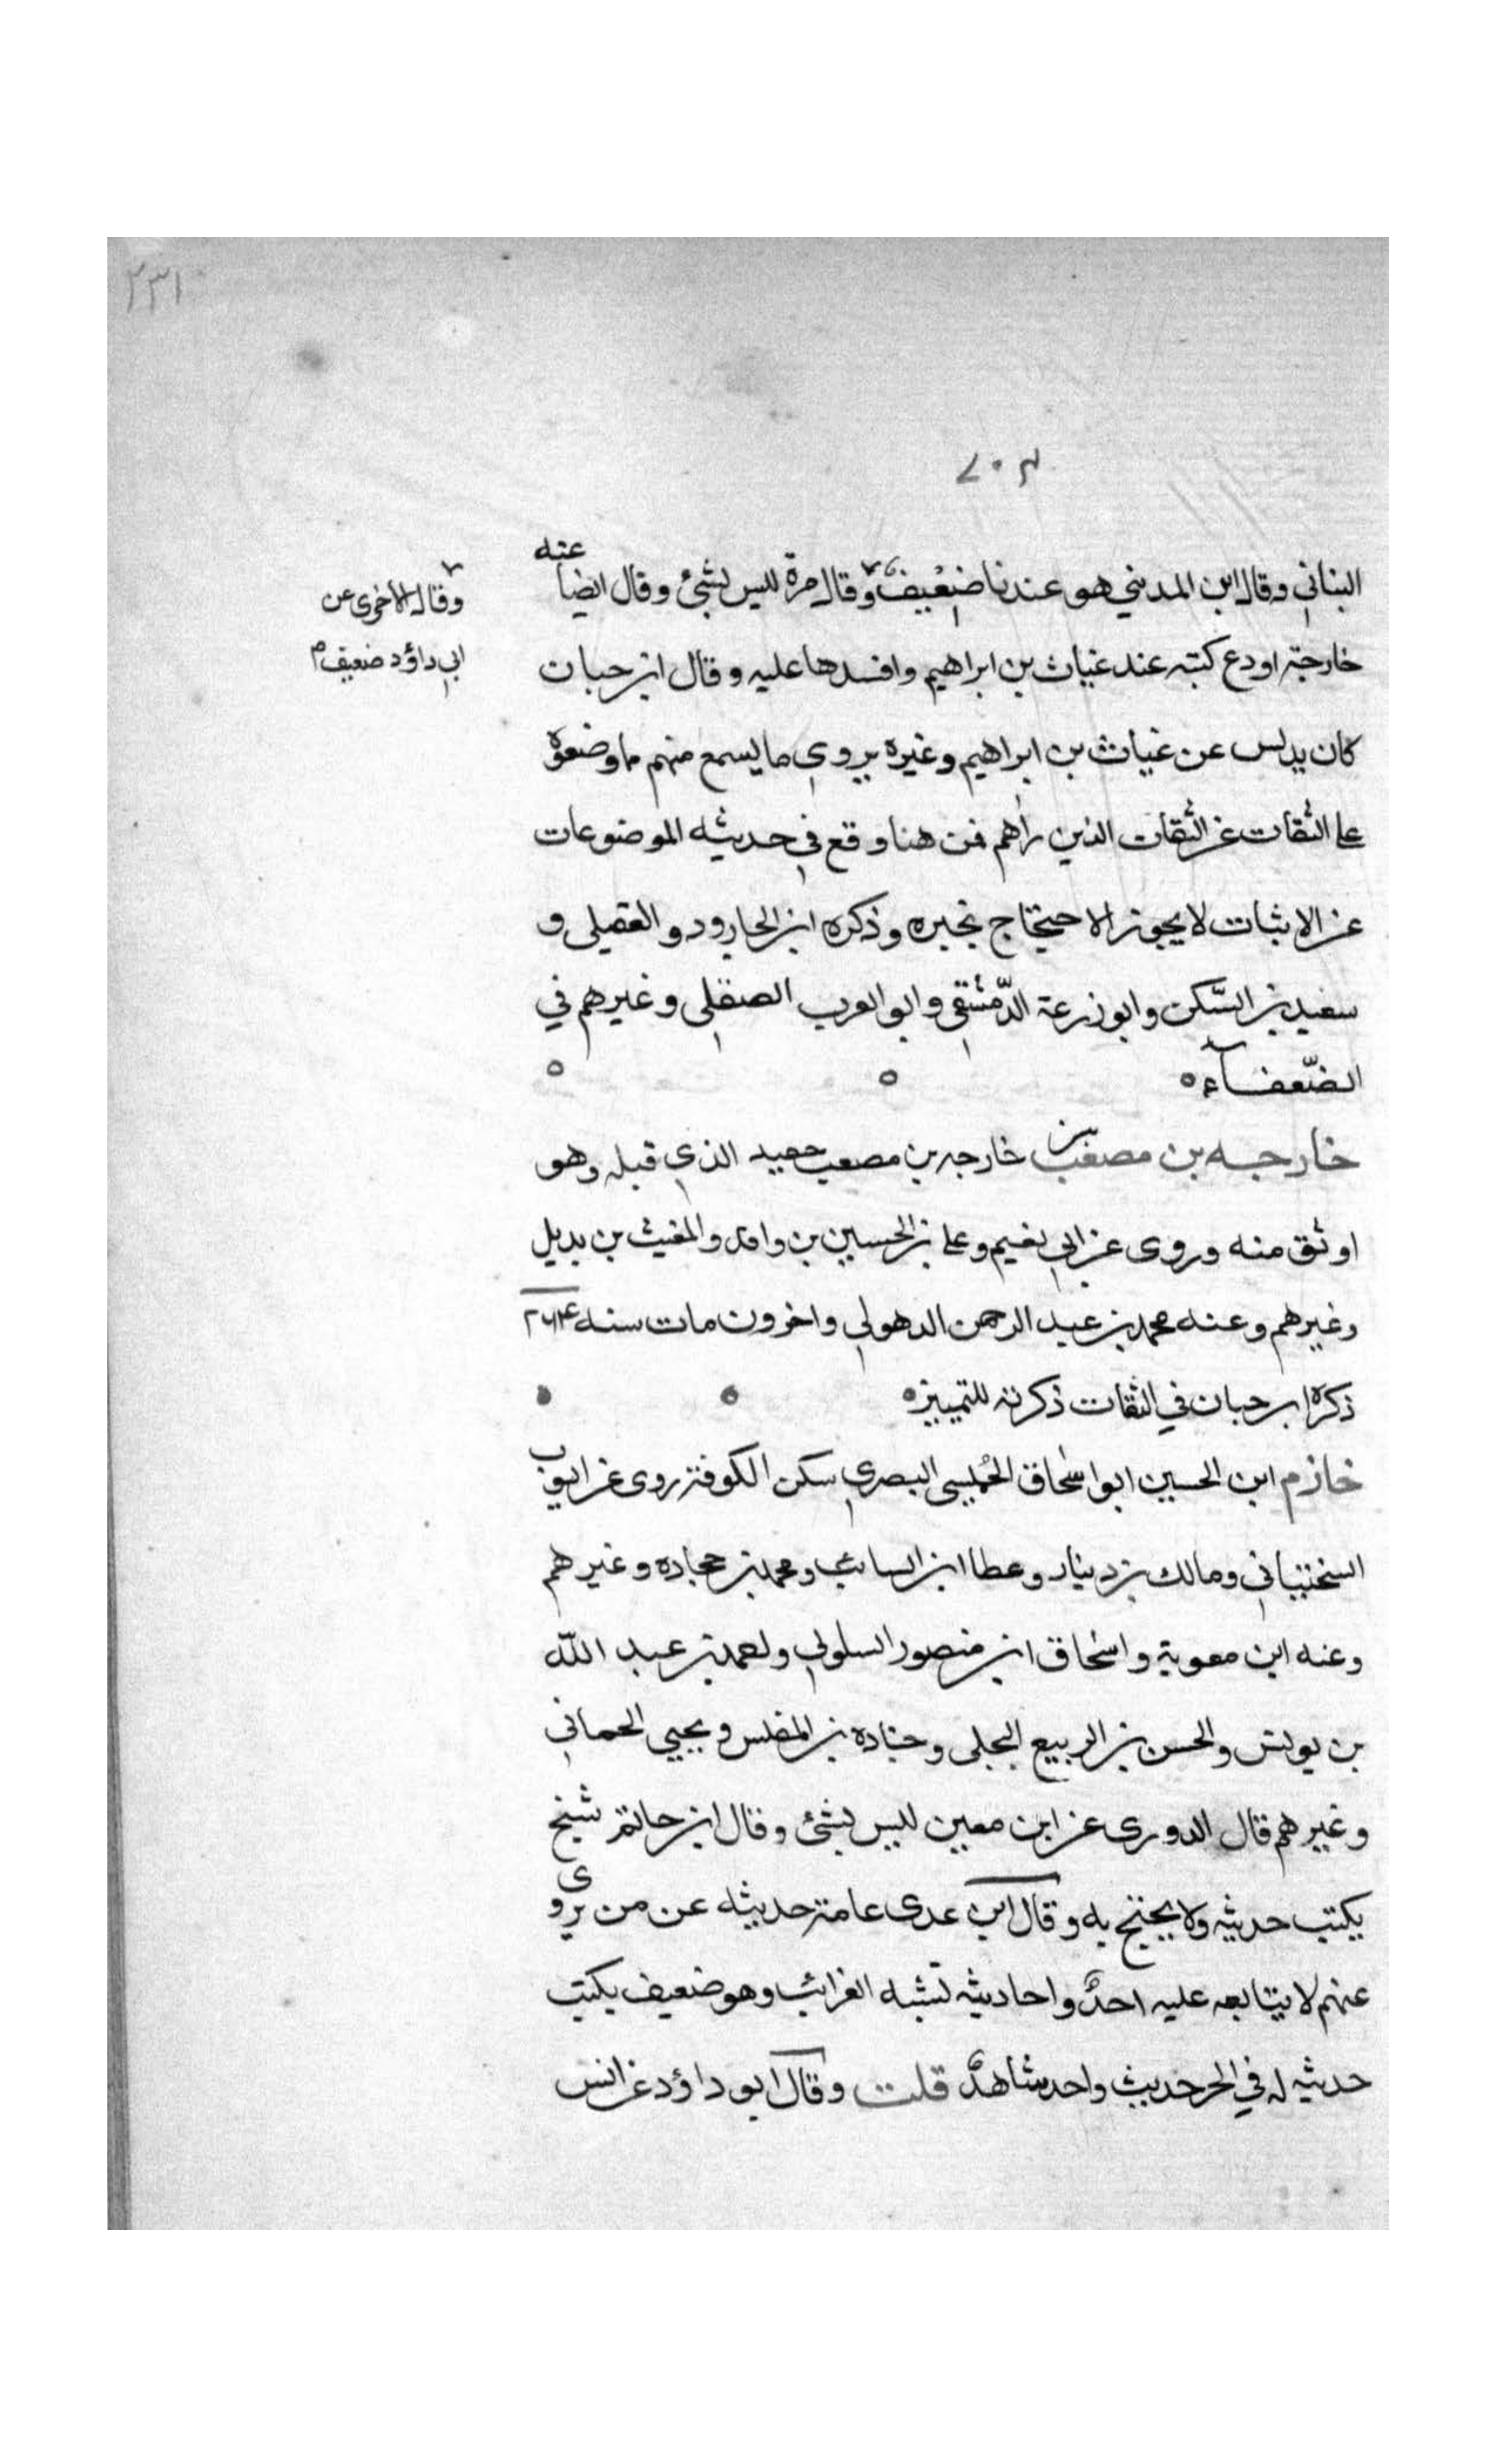 ٢٣١
٧٠٣
البناني وقال ابن المديني هو عندنا ضعيف وقال مرة ليس بشئ وقال ايضا عنه
خارجة اودع كتبه عند غياث بن ابراهيم وافسدها عليه وقال ابن حبان
كان يدلس عن غياث بن ابراهيم وغيره يروي ما يسمع منهم ما وضعوه
على الثقات عن الثقات الذين راهم فمن هنا وقع في حديثه الموضوعات
عن الاثبات لا يجوز الاحتجاج بخبره وذكره ابن الجارود والعقيلى و
سعيد بن السّكن وابو زرعة الدّمشقي وابو العرب الصقلى وغيرهم في
الضّعفاء ه ه ه
خارجه بن مصعب بن خارجه بن مصعب حفيد الذي قبله وهو
اوثق منه وروى عن ابي نعيم وعلى بن الحسين بن واقد والمغيث بن بديل
وغيرهم وعنه محمد بن عبد الرحمن الدهولي واخرون مات سنه ٢٦٤
ذكره ابن حبان في الثقات ذكرته للتمييز ه
خازم ابن الحسين ابو اسحاق الحُميسى البصري سكن الكوفة روى عن ايوب
السختياني ومالك بن دينار وعطا ابن السائب ومحمد بن حجاده وغيرهم
وعنه ابن معوية واسحاق ابن منصور السلولي ولحمد بن عبد الله
بن يونس والحسن بن الربيع البجلى وجناده بن المغلس ويحيي الحماني
وغيرهم قال الدورى عن ابن معين ليس بشئ وقال ابن حاتم شيخ
يكتب حديثه ولا يحتج به وقال ابن عدى عامة حديثه عن من يروى
عنهم لا يتابعه عليه احدٌ واحاديثه تشبه الغرائب وهو ضعيف يكتب
حديثه له في الحر حديث واحد شاهدٌ قلت وقال ابو داؤد عن انس
وقال الأخرى عن
ابي داؤد ضعيف م